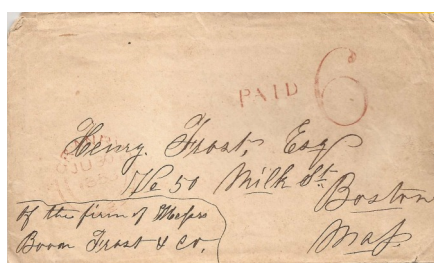 PAID 6
Henry. Frost, Esq
No 50 Milk St.
Boston
Mas.
Of the firm of Messrs
Frost & Co.